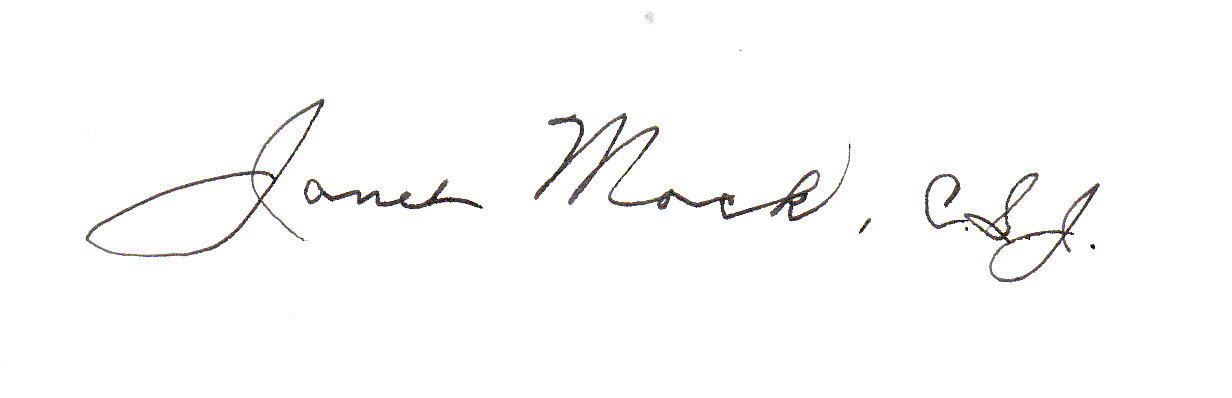 Janet Mock, C.S.J.